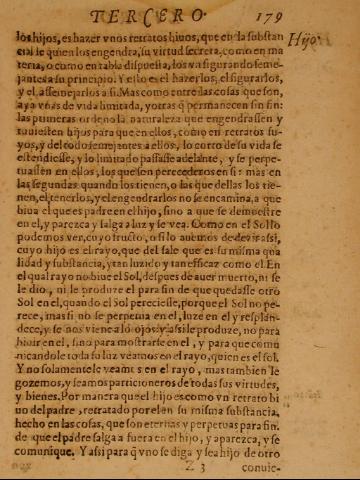 TERCERO. 179
los hijos, es hazer vnos retratos biuos, que en la substan
cia de quien los engendra, su virtud secreta, como en ma
teria, o como en tabla dispuesta, los va figurando seme-
jantes a su principio. Y esto es el hazerlos, el figurarlos,
y el assemejarlos a si. Mas como entre las cosas que son,
aya vnas de vida limitada, y otras q̃ permanecen sin fin:
las primeras ordenò la naturaleza que engendrassen y
tuuiessen hijos para que en ellos, como en retratos su-
yos, y del todo semejantes a ellos, lo corto de su vida se
estendiesse, y lo limitado passasse adelante, y se perpe-
tuassen en ellos, los que sen perecederos en si: mas en
las segundas quando los tienen, o las que dellas los tie-
nen, el tenerlos, y el engendrarlos no se encamina, a que
biua el que es padre en el hijo, sino a que se demuestre
en el, y parezca y salga a luz y se vea. Como en el Sol lo
podemos ver, cuyo fructo, o si lo auemos de dezir assi,
cuyo hijo es el rayo, que del sale que es su misma qua
lidad y substancia, y tan luzido y tan efficaz como el. En
el qual rayo no biue el Sol, despues de auer muerto, ni se
le dio, ni le produze el para fin de que quedasse otro
Sol en el, quando el Sol pereciesse, porque el Sol no pe-
rece, mas si no se perpetua en el, luze en el y resplan-
dece, y se nos viene a lò ojos: y assi le produze, no para
biuir en el, sino para mostrarse en el, y para que comu
nicandole toda su luz veamos en el rayo, quien es el sol.
Y no solamente le veamos en el rayo, mas tambien le
gozemos, y seamos particioneros de todas sus virtudes,
y bienes. Por manera que el hijo es como vn retrato bi
uo del padre, retratado por el en su misma substancia,
hecho en las cosas, que son eternas y perpetuas para fin.
de que el padre salga a fuera en el hijo, y aparezca, y se
comunique. Y assi para q̃ vno se diga y sea hijo de otro
Z 3 conuie-
Hijo.